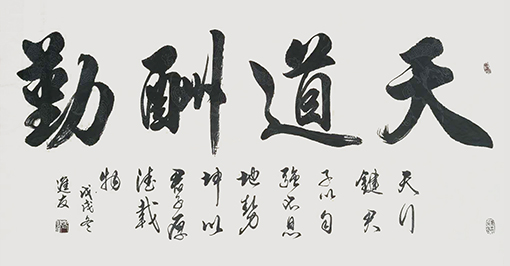 天道酬勤
天行
健君
子以自
強不息
地勢
坤以
君子厚
德載
物
戊戌冬
進友